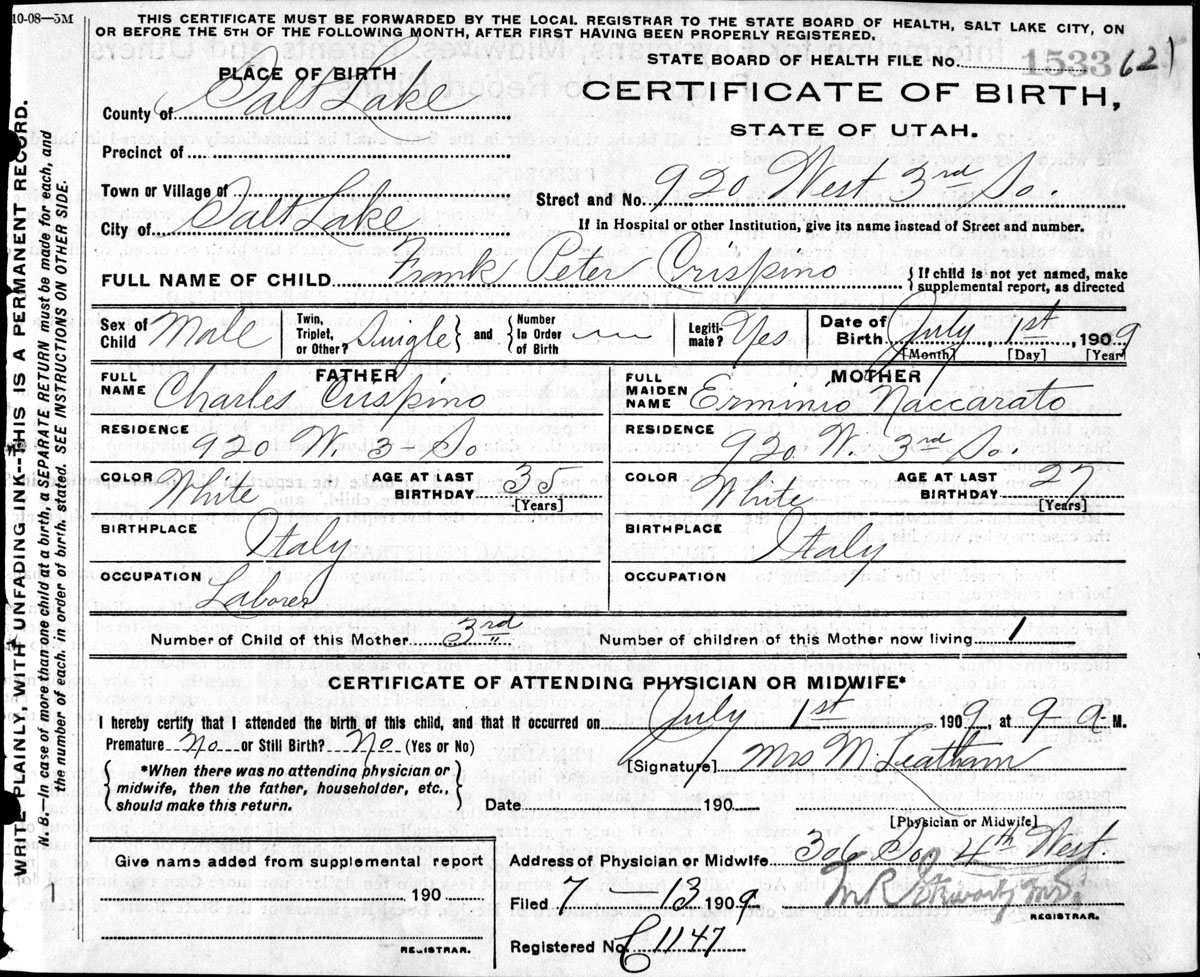 10-08—5M
THIS CERTIFICATE MUST BE FORWARDED BY THE LOCAL REGISTRAR TO THE STATE BOARD OF HEALTH, SALT LAKE CITY, ON
OR BEFORE THE 5TH OF THE FOLLOWING MONTH, AFTER FIRST HAVING BEEN PROPERLY REGISTERED.
STATE BOARD OF HEALTH FILE No. 1533 625
PLACE OF BIRTH
CERTIFICATE OF BIRTH,
STATE OF UTAH.
County of Salt Lake
Precinct of
Town or Village of
Street and No. 920 West 3rd So.
City of Salt Lake
If in Hospital or other Institution, give its name instead of Street and number.
FULL NAME OF CHILD Frank Peter Crispino {If child is not yet named, make
supplemental report, as directed
Sex of Child Male
Twin, Triplet, or Other? Single } and { Number In Order of Birth
Legiti- mate? Yes
Date of Birth July 1st, 1909
[Month] [Day] [Year]
FATHER
FULL NAME Charles Crispino
MOTHER
FULL MAIDEN NAME Erminio Naccarato
RESIDENCE 920 W. 3 - So
RESIDENCE 920 W. 3rd So.
COLOR White AGE AT LAST BIRTHDAY 35 [Years]
COLOR White AGE AT LAST BIRTHDAY 27 [Years]
BIRTHPLACE Italy
BIRTHPLACE Italy
OCCUPATION Laborer
OCCUPATION
Number of Child of this Mother 3rd
Number of children of this Mother now living 1
CERTIFICATE OF ATTENDING PHYSICIAN OR MIDWIFE*
I hereby certify that I attended the birth of this child, and that it occurred on July 1st 1909 at 9 a M.
Premature No or Still Birth? No (Yes or No)
{ *When there was no attending physician or
midwife, then the father, householder, etc.,
should make this return. }
[Signature] Mrs M. Leatham
Date 190
[Physician or Midwife]
Give name added from supplemental report
190
REGISTRAR.
Address of Physician or Midwife 306 So 4th West.
Filed 7 - 13 1909
REGISTRAR.
Registered No. C 1147
WRITE PLAINLY, WITH UNFADING INK—THIS IS A PERMANENT RECORD.
N. B.—In case of more than one child at a birth, a SEPARATE RETURN must be made for each, and
the number of each, in order of birth, stated. SEE INSTRUCTIONS ON OTHER SIDE.